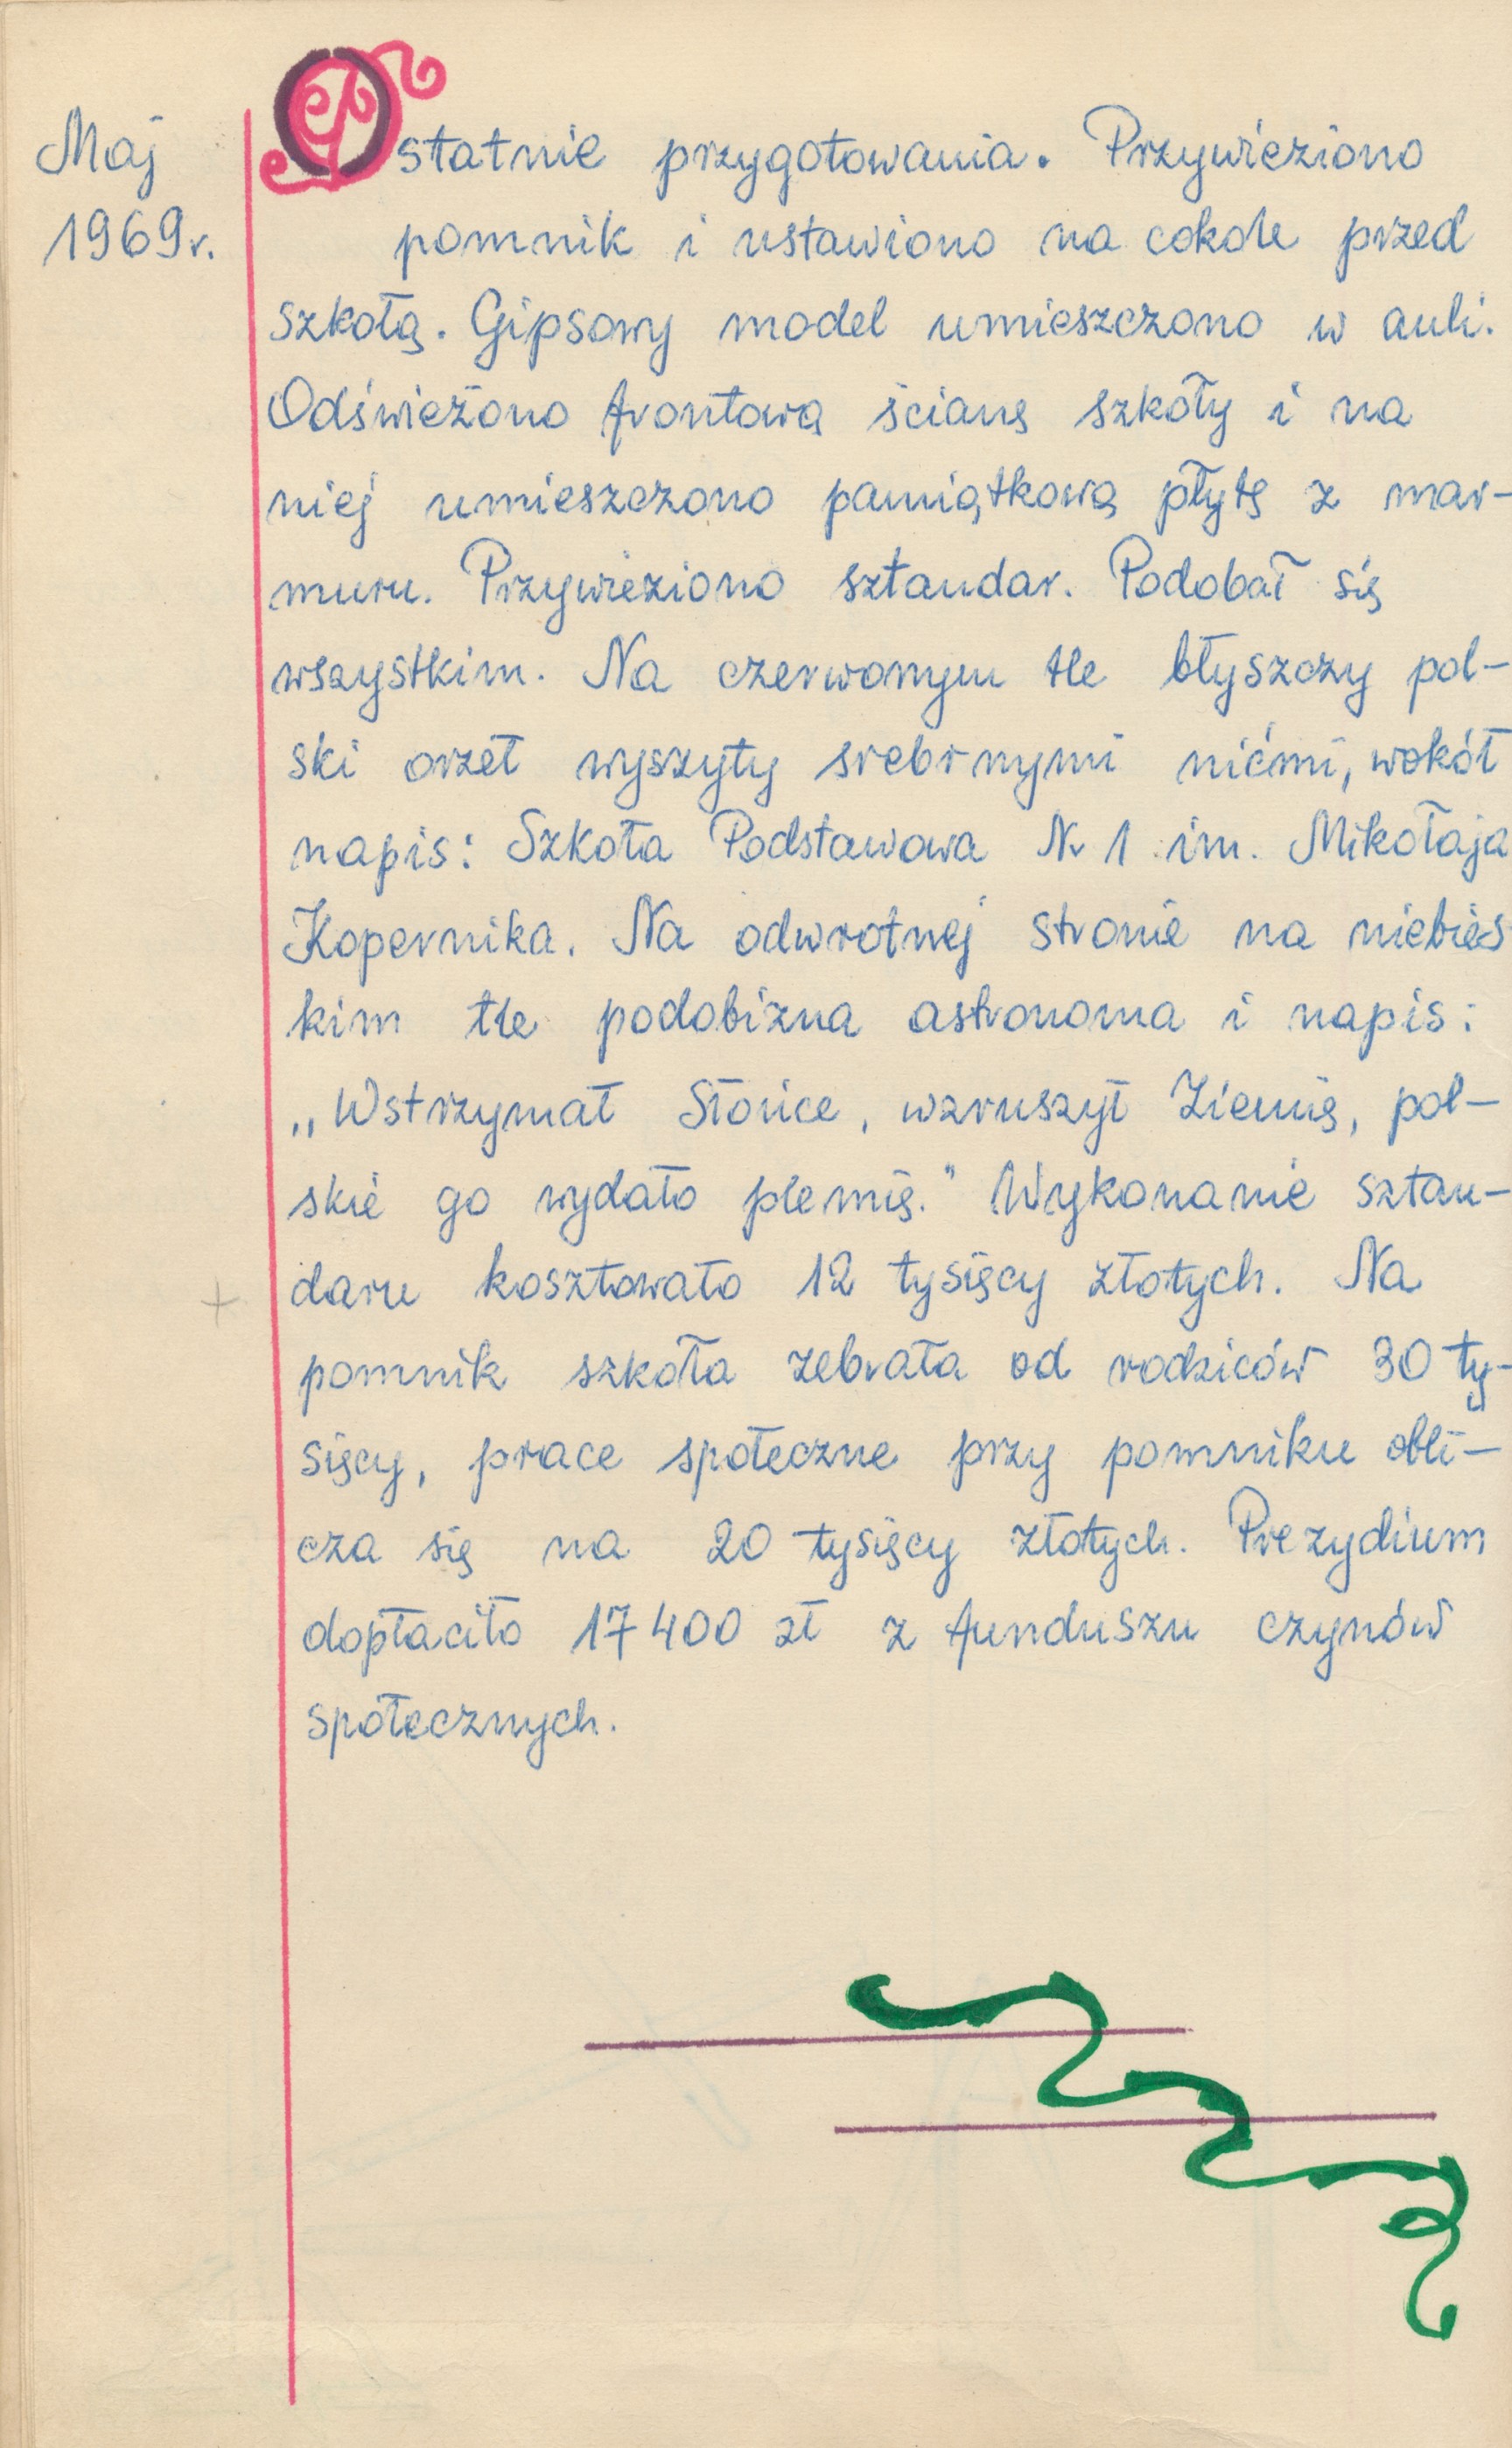 Maj
1969r.
Ostatnie przygotowania. Przywieziono
pomnik i ustawiono na cokole przed
szkołą. Gipsowy model umieszczono w auli.
Odświeżono frontową ścianę szkoły i na
niej umieszczono pamiątkową płytę z mar-
muru. Przywieziono sztandar. Podobał się
wszystkim. Na czerwonym tle błyszczy pol-
ski orzeł wyszyty srebrnymi nićmi, wokół
napis: Szkoła Podstawowa Nr 1 im. Mikołaja
Kopernika. Na odwrotnej stronie na niebies
kim tle podobizna astronoma i napis:
„Wstrzymał Słońce, wzruszył Ziemię, pol-
skie go wydało plemię." Wykonanie sztan-
daru kosztowało 12 tysięcy złotych. Na
pomnik szkoła zebrała od rodziców 30 ty-
sięcy, prace społeczne przy pomniku obli-
cza się na 20 tysięcy złotych. Prezydium
dopłaciło 17400 zł z funduszu czynów
społecznych.